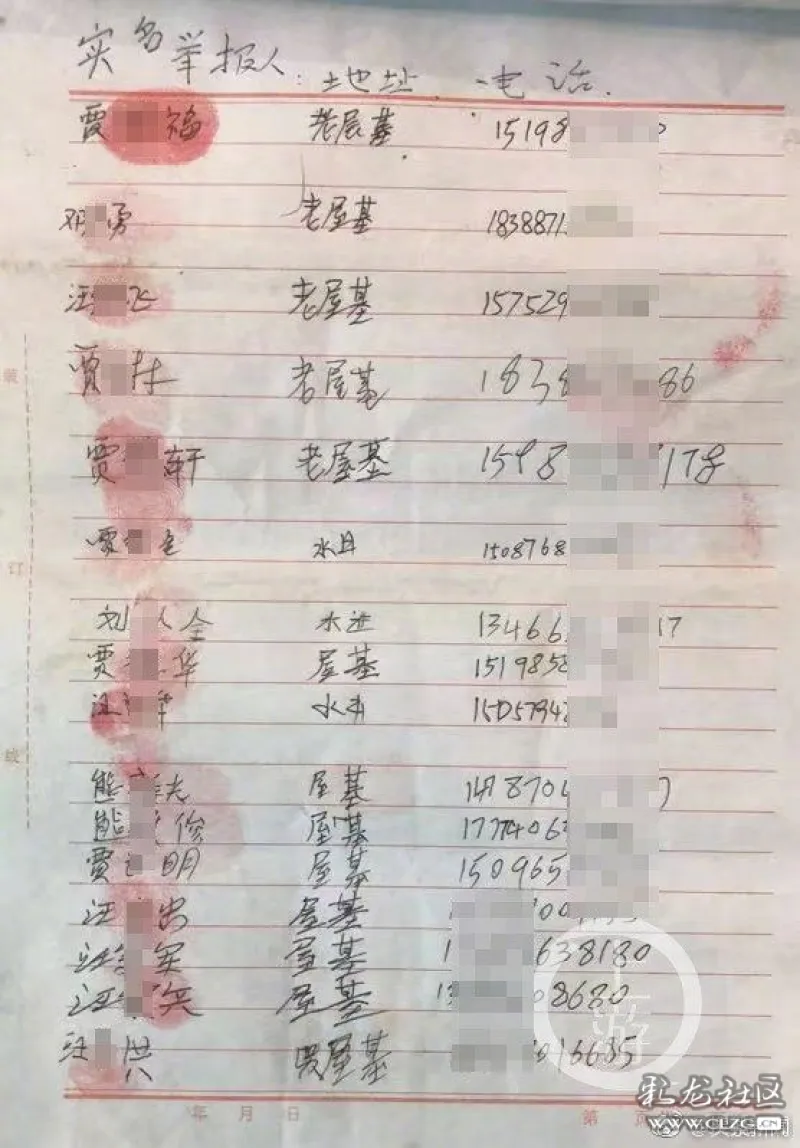 实名举报人:地址.电话.
贾 福 老屋基 15198
邓 勇 老屋基 1838871
汪 飞 老屋基 157529
贾 林 老屋基 1838 86
贾 轩 老屋基 1598 178
装
水井 1508768
订
刘 全 水井 13466 17
贾 华 屋基 1519858
汪 华 15057947
线
熊 光 屋基 148704 7
熊 俊 屋基 1774063
贾 明 屋基 150965
汪 岗 屋基 1
汪 军 屋基 1 638180
汪 兵 屋基 13 08680
汪 洪 屋基 016635
年 月 日 第 页
上游
彩龙社区
WWW.CLZG.CN